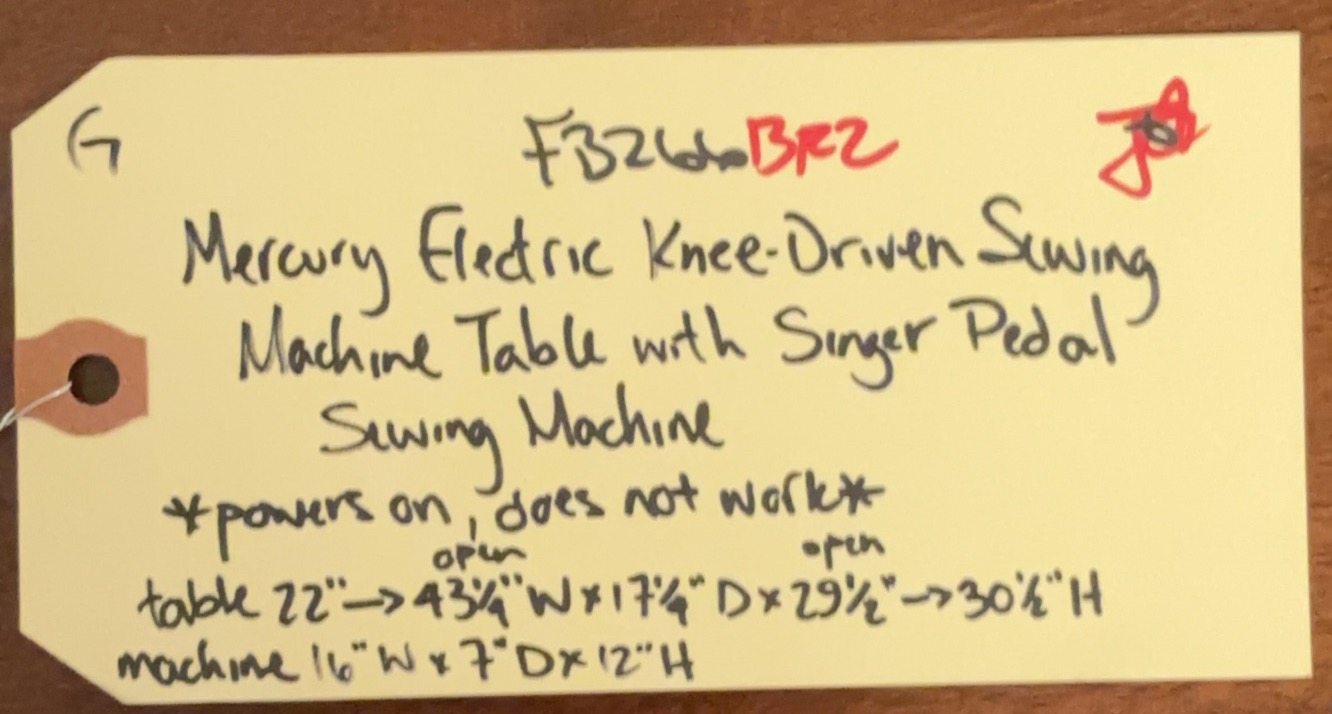 G
BR2
Mercury Electric Knee-Driven Sewing
Machine Table with Singer Pedal
Sewing Machine
*powers on, does not work*
open open
table 22" → 43 1/4" W x 17 1/4" D x 29 1/2" → 30 1/2" H
machine 16" W x 7" D x 12" H